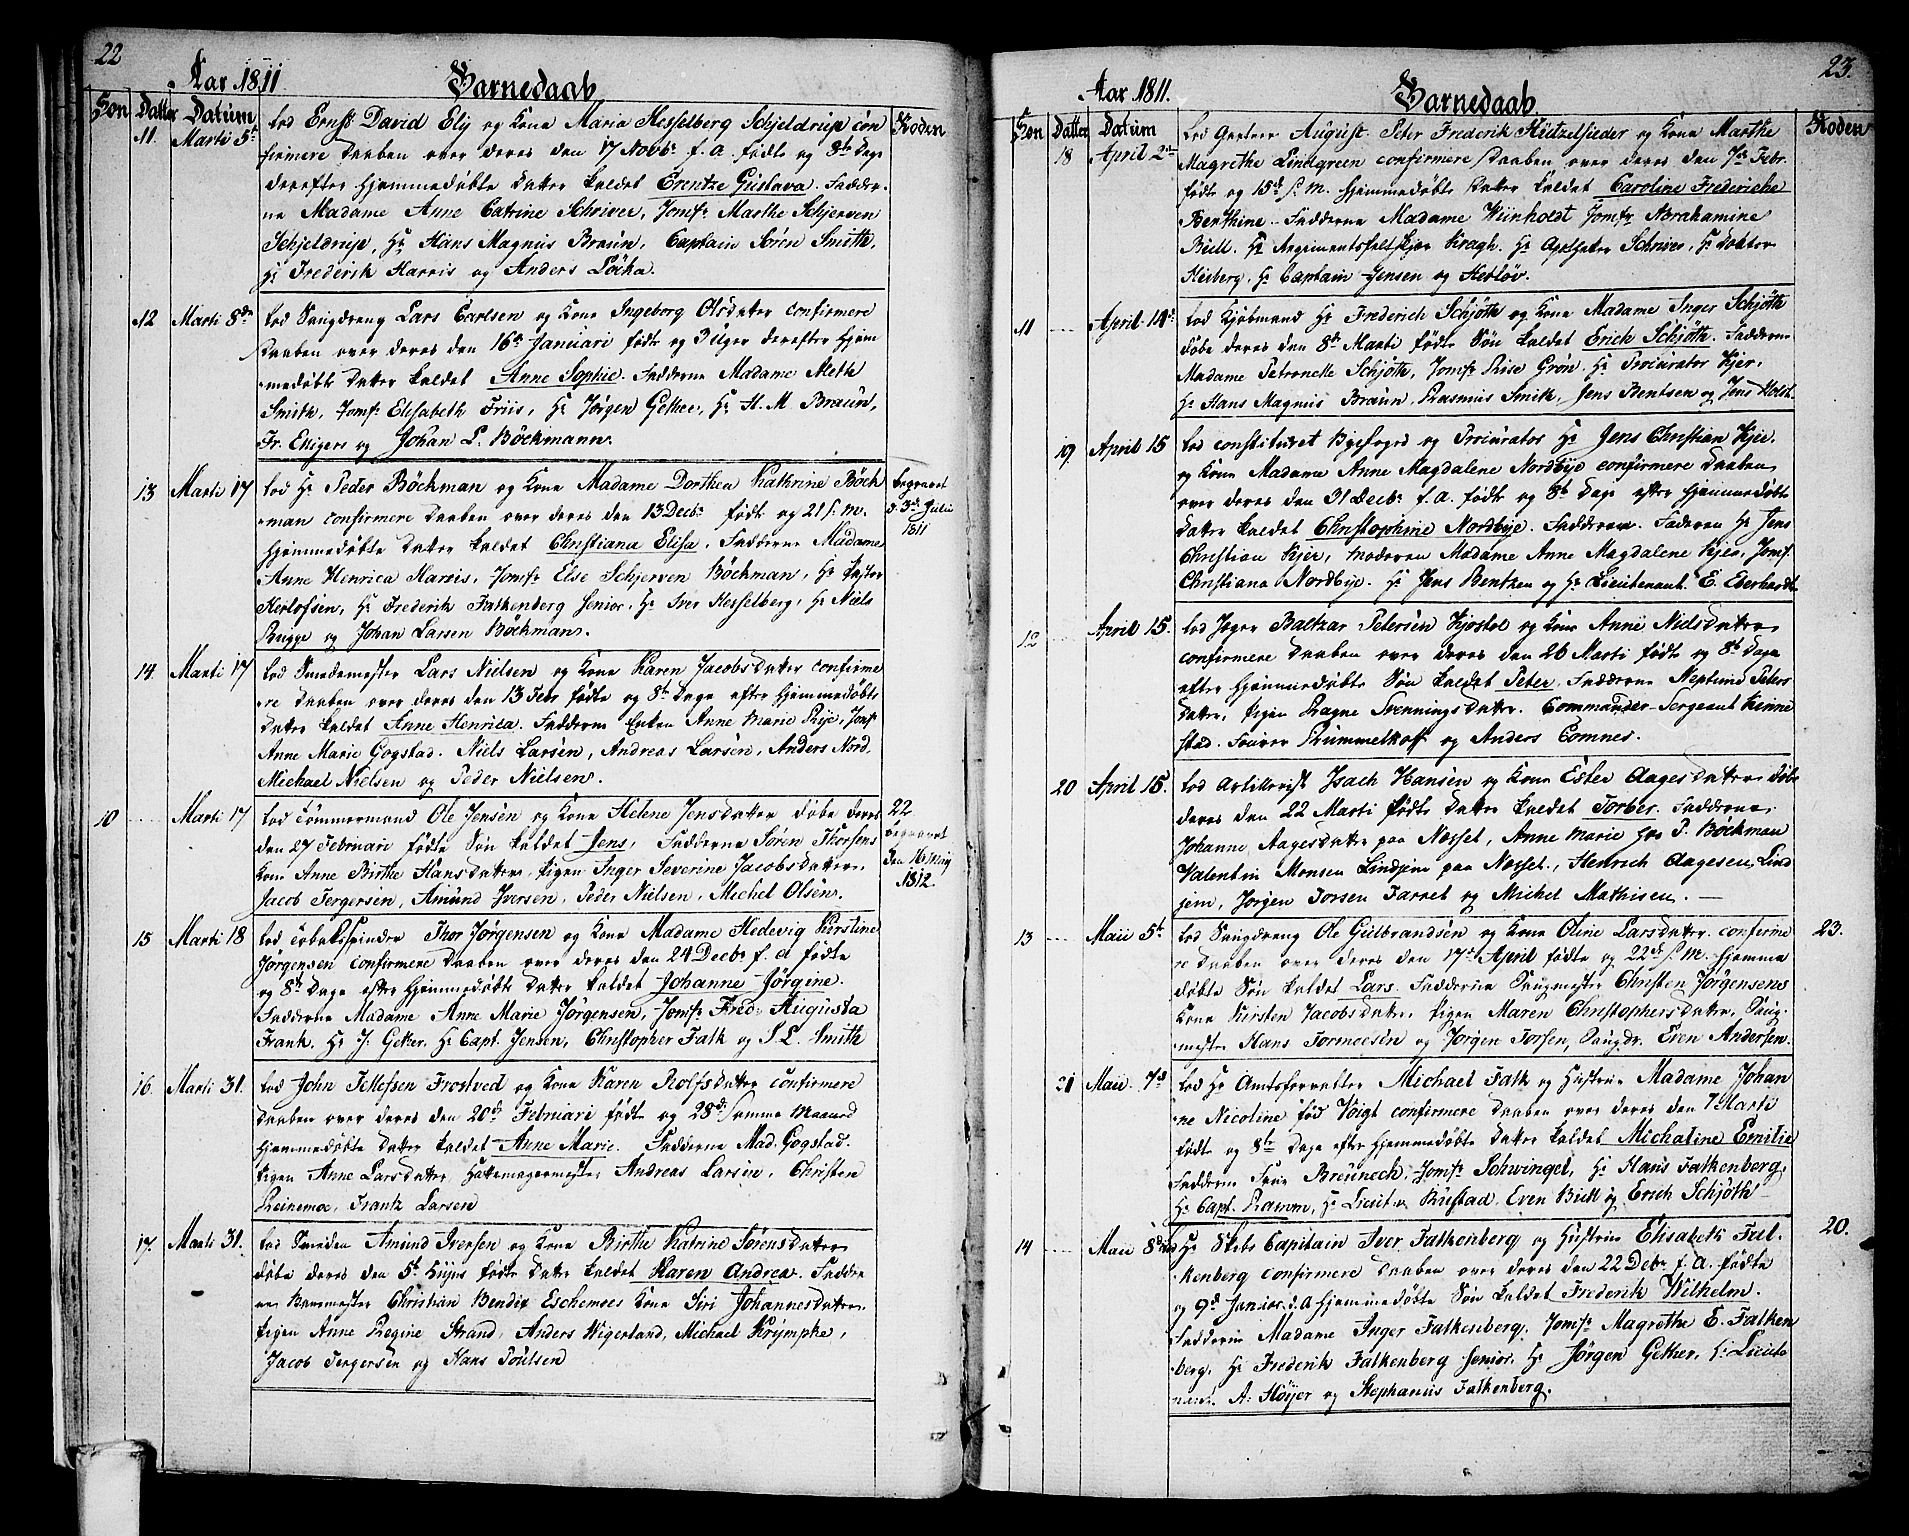 22
Aar 1811 Barnedaab
Søn Datter Datum Noden
11. Marti 5t. Lod Ernst David Ely og Kone Maria Hesselberg Schjeldrup con
firmere Daaben over deres den 17 Novbr f. A. fødte og 8te Dage
derefter hjemmedøbte Datter kaldet Erentze Gustava. Faddre-
ne Madame Anne Catrine Schriver, Jomfr Marthe Schjerven
Schjeldrup, Hr Hans Magnus Braun, Captain Søren Smith,
Hr Frederik Harris og Anders Löcka.
12 Marti 8de Lod Saugdreng Lars Carlsen og Kone Ingeborg Olsdatter confirmere
Daaben over deres den 16de Januari fødte og 3 Uger derefter hjem
medøbte Datter kaldet Anne Sophie. Fadderne Madame Meth
Smith, Jomfr Elisabeth Friis, Hr Jørgen Getker, Hr H. M Braun,
Fr. Ekigers og Johan L. Böckmann.
13 Marti 17 Lod Hr Peder Böckman og Kone Madame Dorthea Kathrine Böck
man confirmere Daaben over deres den 13 Decbr fødte og 21 s. m.
hjemmedøbte Datter kaldet Christiana Elisa. Fadderne Madame
Anne Henrica Harris, Jomfr Else Schjerven Böckman, Hr Pastor
Herlofsen, Hr Frederik Falkenberg Senior, Hr Iver Hesselberg, Hr Niels
Bugge og Johan Larsen Böckman.
begravet
d. 3de Julii
1811
14. Marti 17 Lod Smedemester Lars Nielsen og Kone Karen Jacobsdatter confirme
re Daaben over deres den 13 Febr fødte og 8te Dage efter hjemmedøbte
Datter kaldet Anne Henrica. Fadderne Enken Anne Marie Rije, Jomfr
Anne Marie Gogstad. Niels Larsen, Andreas Larsen, Anders Nord,
Michael Nielsen og Peder Nielsen.
10 Marti 17 Lod Tömmermand Ole Jensen og Kone Helene Jensdatter døbe deres
den 27 Februari fødte Søn kaldet Jens, Fadderne Søren Thorsens
Kone Anne Birthe Hansdatter, Pigen Inger Severine Jacobsdatter
Jacob Torgersen, Amund Iversen, Peder Nielsen, Michel Olsen.
22
begravet
den 16 May
1812.
15 Marti 18 Lod Tobaksspinder Thor Jørgensen og Kone Madame Hedevig Kirstine
Jørgensen confirmere Daaben over deres den 24 Decbr f. a fødte
og 8te Dage efter hjemmedøbte Datter kaldet Johanne Jørgine.
Fadderne Madame Anne Marie Jørgensen, Jomfr Fred: Augusta
Frank. Hr J. Getker. Hr Capt. Jensen, Christopher Falk og S. L. Smith
16. Marti 31. Lod John Tellefsen Frostved og Kone Karen Rolfsdatter confirmere
Daaben over deres den 20de Februari fødte og 28de samme Maaned
hjemmedøbte Datter kaldet Anne Marie. Fadderne Mad. Gogstad.
Pigen Anne Larsdatter, Hattemagermester Andreas Larsen, Christen
Reinemoe, Frantz Larsen
17. Marti 31. Lod Smeden Amund Iversen og Kone Birthe Katrine Sørensdatter
døbe deres den 5te hujus fødte Datter kaldet Karen Andrea. Faddre
ne Christian Bendix Eschemoes Kone Siri Johannesdatter,
Pigen Anne Regine Strand, Anders Wigerland, Michael Krympke,
Jacob Torgersen og Hans Poulsen
23.
Aar 1811. Barnedaab
Søn Datter Datum Noden
18 April 2den Lod Gartner August Peter Frederik Hützelsieder og Kone Marthe
Magrethe Lindgreen confirmere Daaben over deres den 7de Febr.
fødte og 15de s. M. hjemmedøbte Datter kaldet Caroline Frederiche
Benthine. Fadderne Madame Wünholdt Jomfr Abrahamine
Bull. Hr Regimentsfeltskjer Kragh. Hr Apotheker Schriver, Hr Doktor
Heiberg, Hr Captain Jensen og Herlov.
11 April 14de Lod Kjøbmand Hr Frederich Schjøth og Kone Madame Inger Schjøth
døbe deres den 8te Marti fødte Søn kaldet Erich Schjøth. Fadderne
Madame Petronelle Schjøth, Jomfr Rise Grøn. Hr Procurator Kjer,
Hr Hans Magnus Braun, Rasmus Smith, Jens Bentsen og Jens Holst.
19. April 15 Lod constitueret Byefoged og Procurator Hr Jens Christian Kjer.
og Kone Madame Anne Magdalene Nordbye confirmere Daaben
over deres den 31 Decbr f. a. fødte og 8te Dage efter hjemmedøbte
Datter kaldet Christophine Nordbye. Fadderne. Faderen Hr Jens
Christian Kjer, Moderen Madame Anne Magdalene Kjer, Jomf.
Christiana Nordbye. Hr Jens Bentzen og Hr Lieutenant E. Eberhardt
12 April 15. Lod Jeger Baltzar Petersen Kjostol og Kone Anne Nielsdatter
confirmere Daaben over deres den 26 Marti fødte og 8te Dage
efter hjemmedøbte Søn kaldet Peter. Fadderne Neptuna Peters
datter, Pigen Ragne Svenningsdatter. Commander-Sergeant Kinne
stad. Rummelhoff og Anders Comnes.
20 April 15. Lod Artillerist Isach Hansen og Kone Ester Aagesdatter døbe
deres den 22 Marti fødte Datter kaldet Torber. Fadderne,
Johanne Aagesdatter paa Nesset, Anne Marie hos P. Böckman
Valentin Monsen Lindjem paa Nesset, Henrich Aagesen Lind
jem, Jørgen Torsen Farret og Michel Mathisen.
13 Maii 5t. Lod Saugdreng Ole Gulbrandsen og Kone Oline Larsdatter confirme
re Daaben over deres den 17de April fødte og 22de s. M. hjemme
døbte Søn kaldet Lars. Fadderne Saugmester Christen Jørgensens
Kone Kirsten Jacobsdatter, Pigen Maren Christophersdatter, Saug-
mester Hans Tormoesen og Jørgen Torsen, Saugdr. Even Andersen.
23.
21 Maii. 7de Lod Hr Amtsforvalter Michael Falk og Hustrue Madame Johan
ne Nicoline fød Voigt confirmere Daaben over deres den 7 Marti
fødte og 8te Dage efter hjemmedøbte Datter kaldet Michaline Emilie
Fadderne Frue Breuneck, Jomfr Schwingel, Hr Hans Falkenberg,
Hr Capt. Ramm, Hr Lieut. v Krustad. Even Bull og Erich Schjøth
14 Maii 8de Lod Hr Skibs Capitain Iver Falkenberg og Hustrue Elisabeth Fal-
kenberg confirmere Daaben over deres den 22 Debr. f. A. fødte
og 9de Januar. d. A hjemmedøbte Søn kaldet Frederik Wilhelm.
Fadderne Madame Inger Falkenberg. Jomfr Magrethe E. Falken
berg, Hr Frederik Falkenberg Senior, Hr Jørgen Getker, Hr Lieute
nant. A. Høyer og Stephanus Falkenberg.
20.